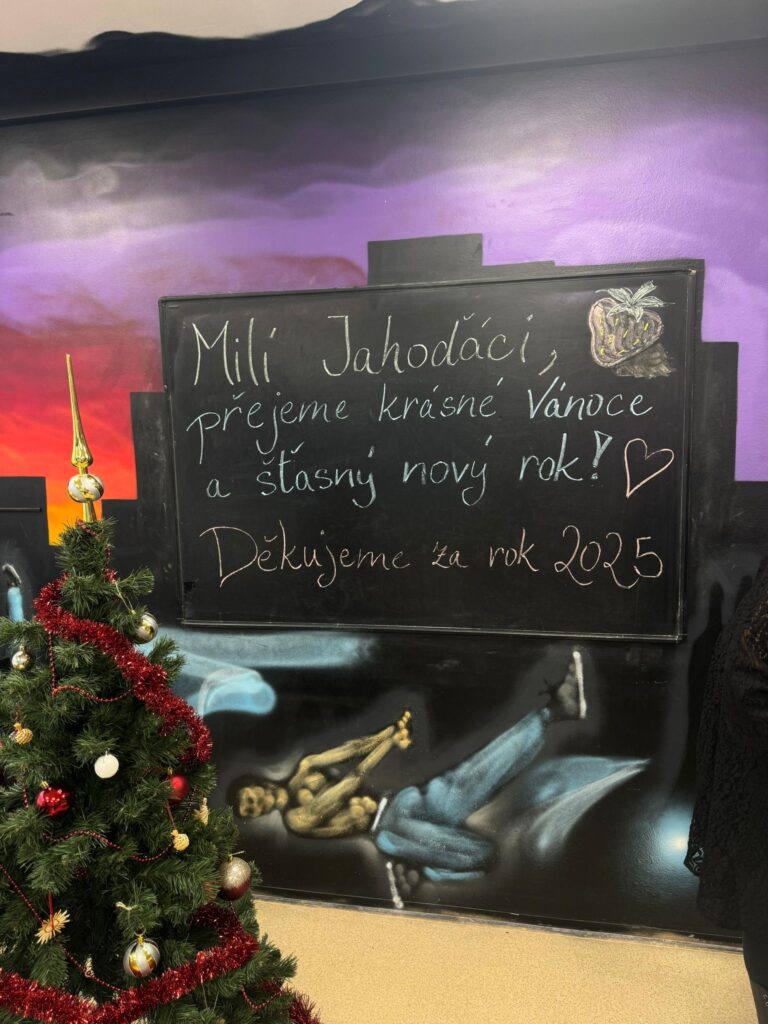 Milí Jahoďáci,
přejeme krásné Vánoce
a šťasný nový rok!
Děkujeme za rok 2025